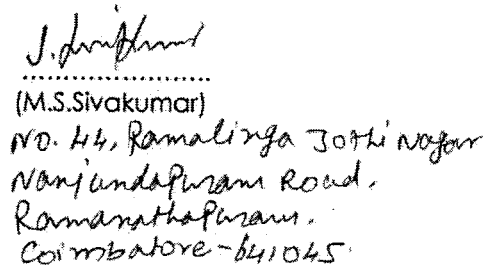 ....................
(M.S.Sivakumar)
NO. 44, Ramalinga Jothi Nagar
Nanjundapuram Road,
Ramanathapuram.
Coimbatore-641045.